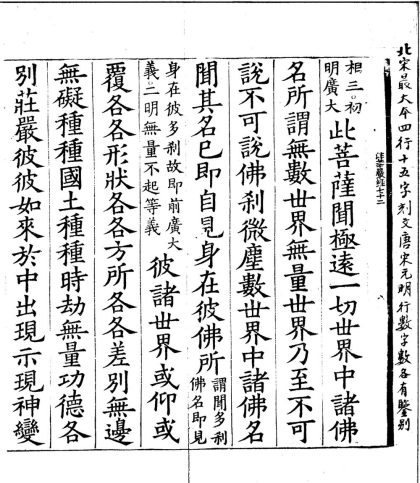 北宋最大本四行十五字刻文唐宋元明行數字數各有鑒別
相三初
明廣大
此菩薩聞極遠一切世界中諸佛
名所謂無數世界無量世界乃至不可
說不可說佛刹微塵數世界中諸佛名
聞其名已即自見身在彼佛所
謂聞多刹
佛名即見
身在彼多刹故即前廣大
義二明無量不起等義
彼諸世界或仰或
覆各各形狀各各方所各各差別無邊
無礙種種國土種種時劫無量功德各
別莊嚴彼彼如來於中出現示現神變